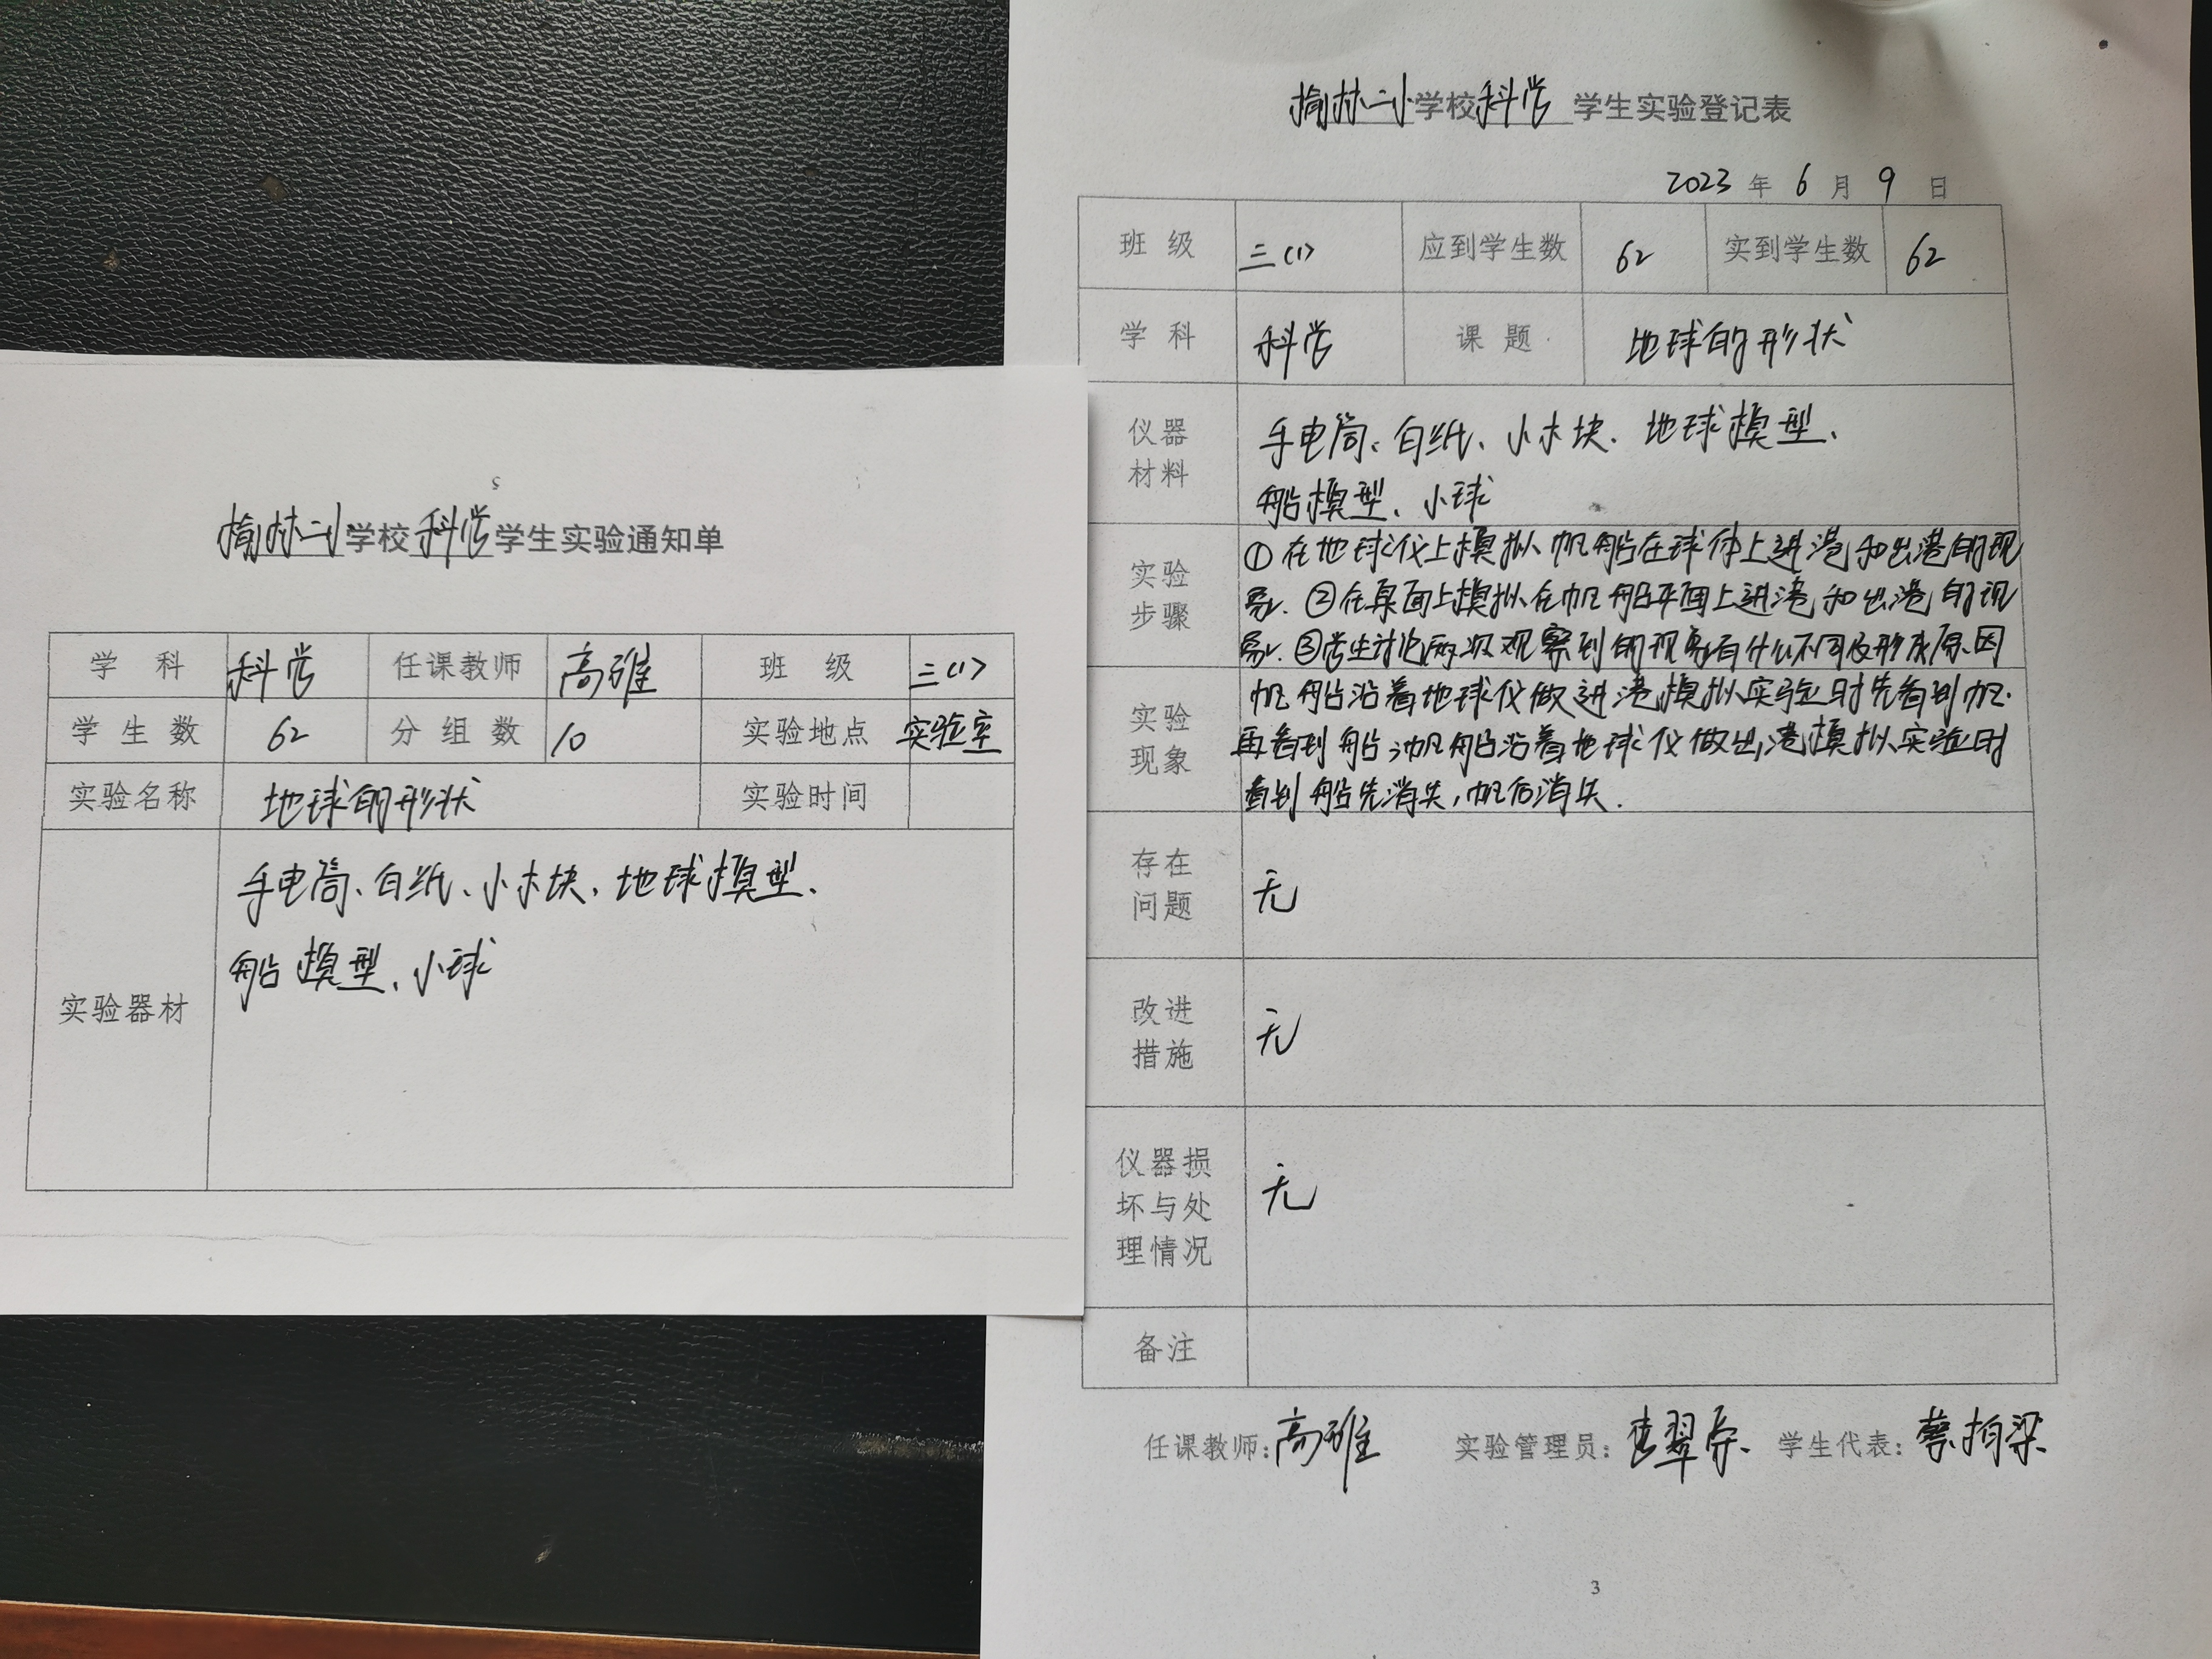 榆林二小学校科学学生实验通知单
学科 科学 任课教师 高雅 班级 三(1)
学生数 62 分组数 10 实验地点 实验室
实验名称 地球的形状 实验时间
实验器材
手电筒、白纸、小木块、地球模型、
船模型、小球
榆林二小学校科学学生实验登记表
2023年6月9日
班级 三(1) 应到学生数 62 实到学生数 62
学科 科学 课题 地球的形状
仪器
材料
手电筒、白纸、小木块、地球模型、
船模型、小球
实验
步骤
①在地球仪上模拟帆船在球体上进港和出港的现
象.②在桌面上模拟在帆船平面上进港和出港的现
象.③学生讨论两次观察到的现象有什么不同及形成原因
实验
现象
帆船沿着地球仪做进港模拟实验时先看到帆.
再看到船;帆船沿着地球仪做出港模拟实验时
看到船先消失,帆后消失.
存在
问题
无
改进
措施
无
仪器损
坏与处
理情况
无
备注
任课教师:高雅 实验管理员: 学生代表:
3